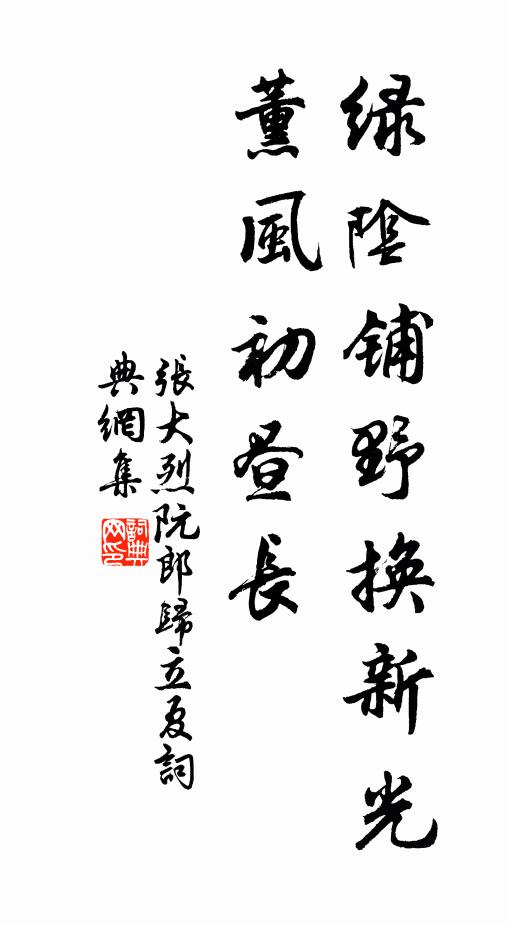 绿陰铺野換新光
薰風初昼長
張大烈阮郎歸立夏詞
典網集
詞典网印